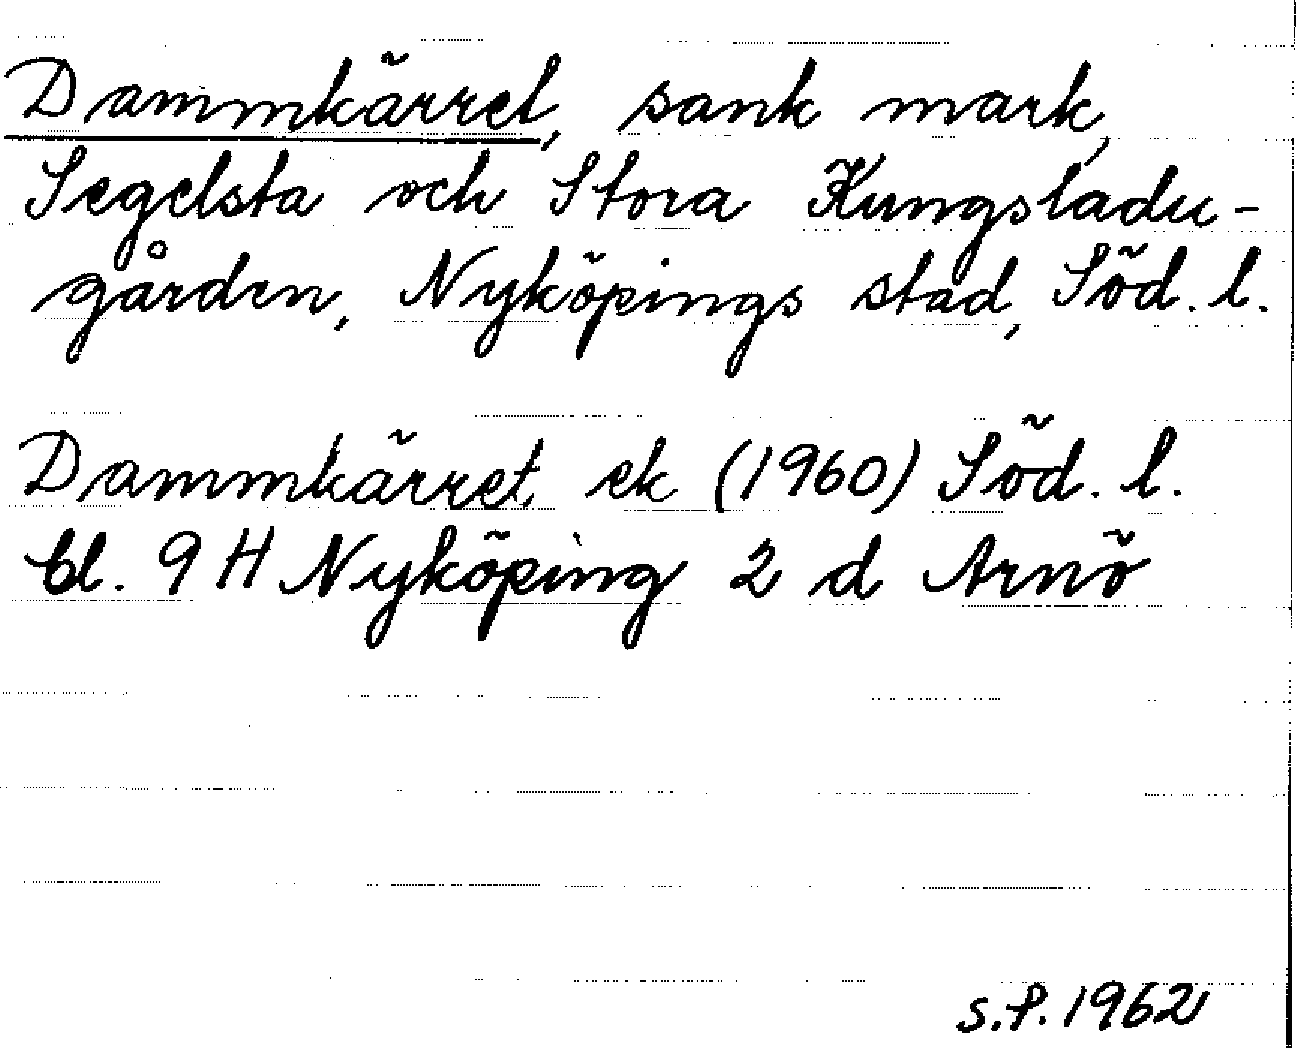 Dammkärret, sank mark,
Segelsta och Stora Kungsladu-
gården, Nyköpings stad, Söd. l.
Dammkärret ek (1960) Söd. l.
bl. 9 H Nyköping 2 d Arnö
S.P. 1962